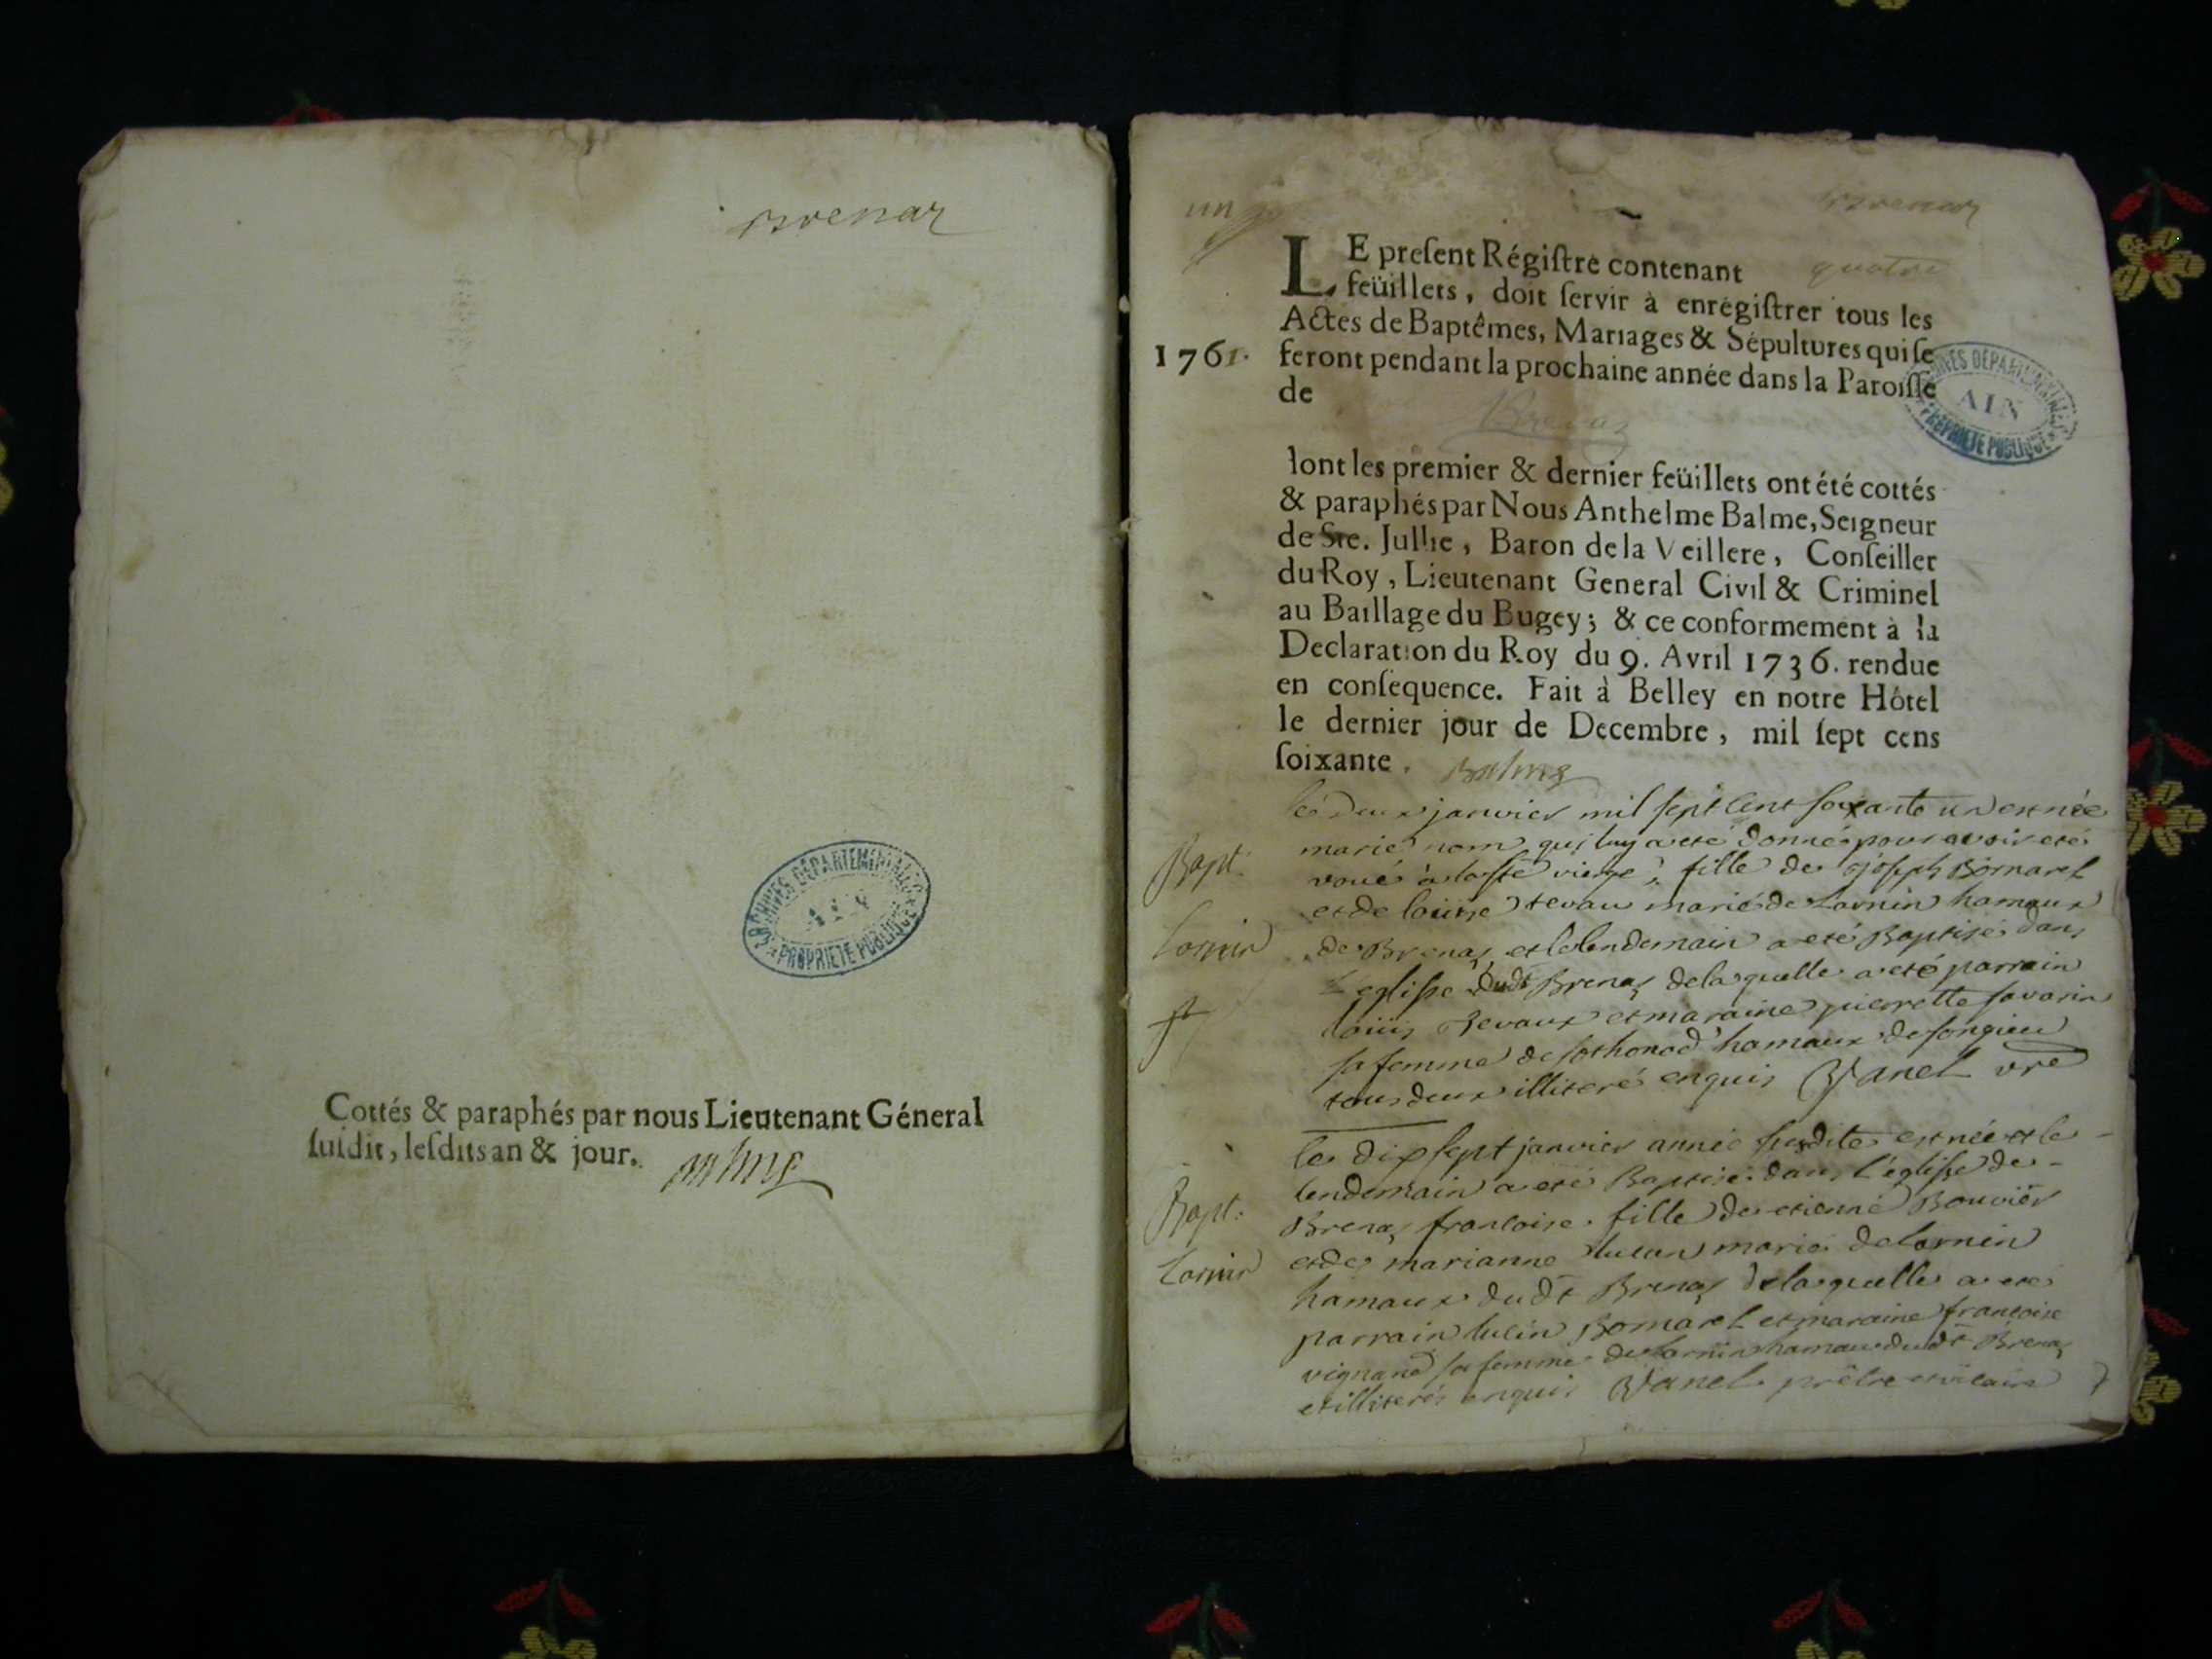 Brenaz
ARCHIVES DÉPARTEMENTALES
AIN
PROPRIÉTÉ PUBLIQUE
Cottés & paraphés par nous Lieutenant Géneral
ſuſdit, leſdits an & jour. Balme
un
Brenaz
LE preſent Régiſtre contenant quatre
feüillets, doit ſervir à enrégiſtrer tous les
Actes de Baptêmes, Mariages & Sépultures qui ſe
1761. feront pendant la prochaine année dans la Paroiſſe
de Brenaz
ARCHIVES DÉPARTEMENTALES
AIN
PROPRIÉTÉ PUBLIQUE
dont les premier & dernier feüillets ont été cottés
& paraphés par Nous Anthelme Balme, Seigneur
de Ste. Jullie, Baron de la Veillere, Conſeiller
du Roy, Lieutenant General Civil & Criminel
au Baillage du Bugey; & ce conformement à la
Declaration du Roy du 9. Avril 1736. rendue
en conſequence. Fait à Belley en notre Hôtel
le dernier jour de Decembre, mil ſept cens
ſoixante. Balme
le deux janvier mil sept cent soixante un est née
Bapt. marie nom qui luy a eté donné pour avoir eté
voué a la ste vierge, fille de joseph Bornarel
et de loüise tevau marié de Lornin hamaux
Lornin de Brenaz et le lendemain a eté Baptisé dans
L'eglise dudt Brenaz de laquelle a eté parrain
loüis Revaux et maraine pierrette savarin
sa femme de sothonod hamaux de songieu
tous deux illiteré enquis Vanel vre
le dix sept janvier année susdite est née et le
lendemain a eté Baptisé dans l'eglise de
Bapt. Brenaz francoise fille de etienne Bouvier
Lornin et de marianne lucan marié de Lornin
hamaux dudt Brenaz de laquelle a eté
parrain lucin Bornarel et maraine francoise
vignand sa femme de Lornin hamau dudt Brenaz
et illiterés enquis Vanel prêtre et vicaire